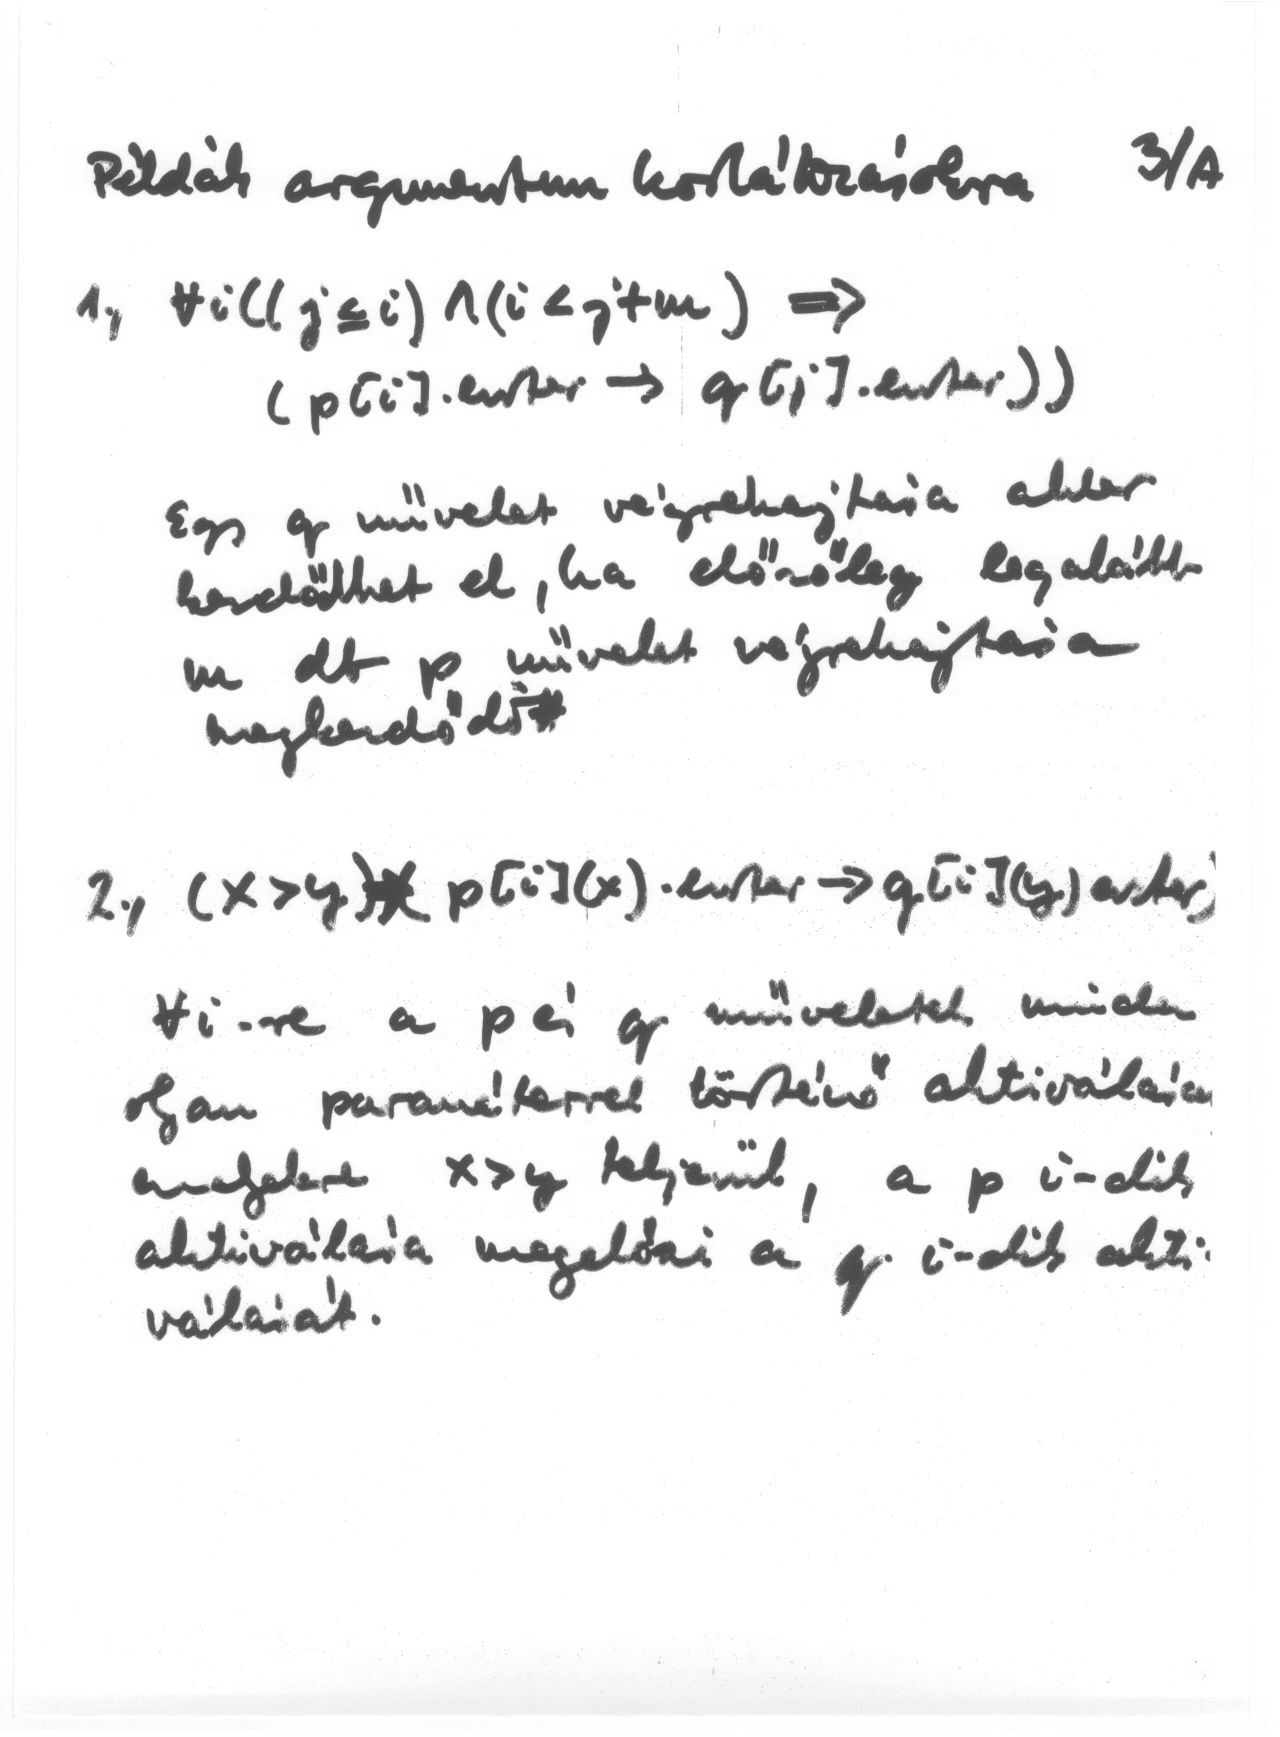 Példák argumentum korlátozásokra 3/A
1, ∀i((j≤i)∧(i<j+m) ⇒
(p[i].enter → q[j].enter))
Egy q művelet végrehajtása akkor
kezdődhet el, ha előzőleg legalább
m db p művelet végrehajtása
megkezdődött
2., (x>y) p[i](x).enter → q[i](y) enter)
∀i-re a p és q műveletek minden
olyan paraméterrel történő aktiválása
melyekre x>y teljesül, a p i-dik
aktiválása megelőzi a q i-dik akti-
válását.